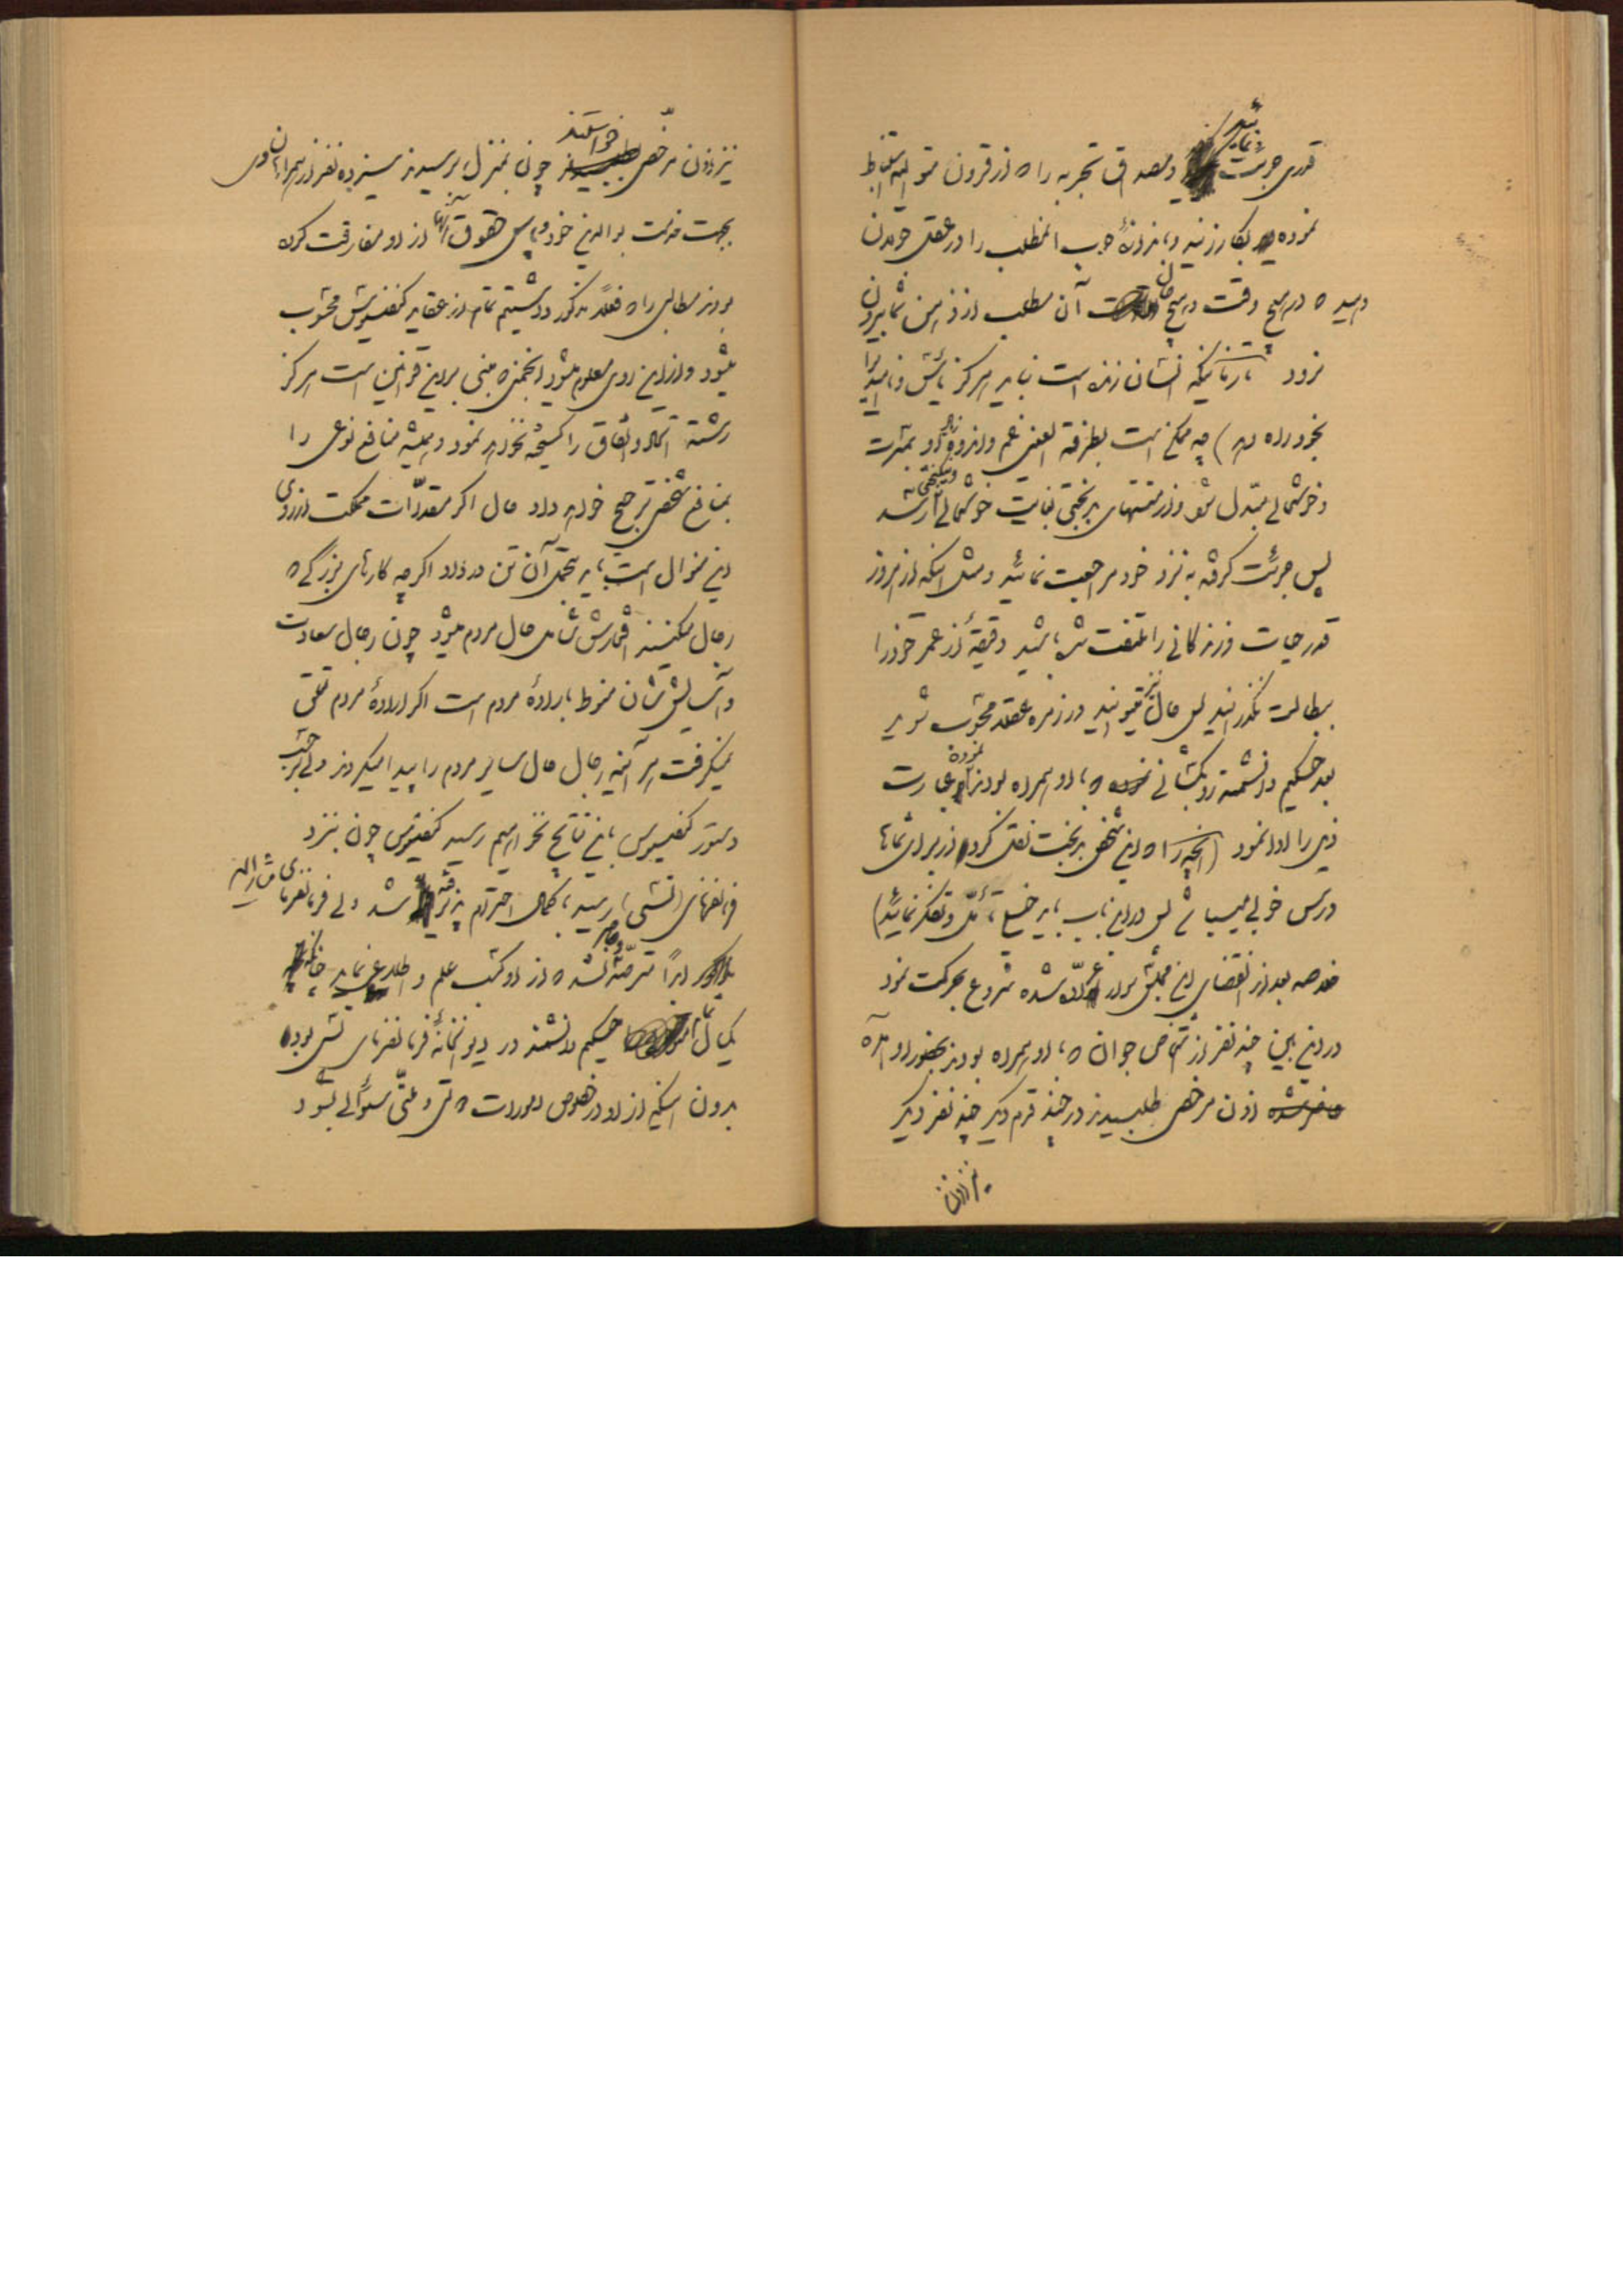 قدری جرئت نمائید و مصداق تجربه را که از قرون متوالیه استنباط
نموده بکار زنید و بمنزلهٔ چوب المطلب را در عقل خودتان
دهید که در هیچ وقت و هیچ حال آن مطلب از ذهن شما بیرون
نرود تا زمانیکه انسان زنده است نباید هرگز یأس و ناامیدی را
بخود راه دهد) چه ممکن است بطرفة العینی غم و اندوه او بمسرت
و خوشحالی مبدل شود و از منتهای بدبختی بغایت خوشحالی و نیکبختی رسد
پس جرئت کرده به نزد خود مراجعت نمائید و مثل اینکه از امروز
قدر حیات و زندگانی را ملتفت شده باشید دقیقهٔ از عمر خود را
ببطالت نگذرانید پس حال نیز میتوانید در زمره عقلا محسوب شوید
بعد حکیم دانشمند رو بکسانی که با او همراه بودند نموده عبارت
ذیل را ادا نمود (آنچه را که این شخص بدبخت نقل کرد از برای شماها
درس خوبی میباشد پس در این باب باید خیلی تأمل و تفکر نمائید)
خلاصه بعد از انقضای این مجلس سوار عراده شده شروع بحرکت نمود
در این بین چند نفر از اشخاص جوان که با او همراه بودند بحضور او آمده
اذن مرخصی طلبیدند در چند قدم دیگر چند نفر دیگر
نیز اذن
نیز اذن مرخصی خواستند چون بمنزل برسیدند سیزده نفر از همراهان وی
بجهت خدمت بوالدین خود و پاس حقوق آنها از او مفارقت کرده
بودند مطالبی را که فعلاً مذکور داشتیم تماماً از عقاید کنفسیوس محسوب
میشود و از این روی معلوم میشود انجمنی که مبنی بر این قوانین است هرگز
رشته اتحاد و اتفاق را گسیخته نخواهد نمود و همیشه منافع نوعی را
بمنافع شخصی ترجیح خواهد داد حال اگر مقدرات مملکت از روی
این منوال است باید بتحمل آن تن در داد اگر چه کارهای بزرگی که
رجال میکنند افتخارش شامل حال مردم میشود چون رجال سعادت
و آسایششان منوط بارادهٔ مردم است اگر ارادهٔ مردم تعلق
نمیگرفت هر آینه رجال حال سایر مردم را پیدا میکردند ولی بر حسب
دستور کنفسیوس باین نتایج نخواهیم رسید کنفسیوس چون بنزد
فرمانفرمای (تشی) رسید با کمال احترام پذیرفته شد ولی فرمانفرمای مشارالیه
ابداً مترصد و حاضر نشد که از او کسب علم و اطلاع نماید چنانکه
یکسال تمام حکیم دانشمند در دیوانخانهٔ فرمانفرمای تشی بوده
بدون اینکه از او در خصوص امورات دولتی و ملتی سئوالی بشود